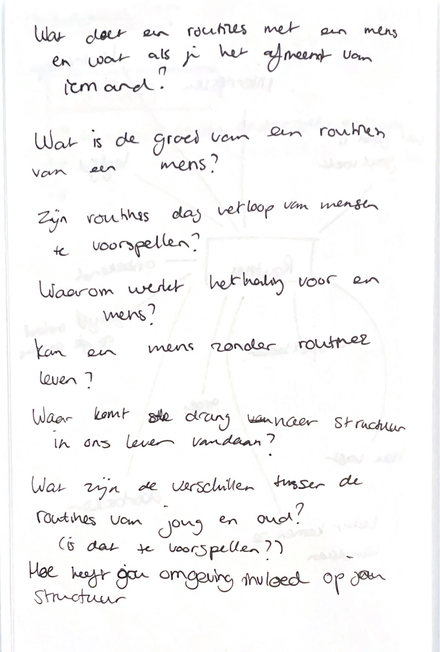 Wat doet een routines met een mens
en wat als je het afneemt van
iemand?
Wat is de groei van een routines
van een mens?
Zijn routines dag verloop van mensen
te voorspellen?
Waarom werkt herhaling voor en
mens?
kan en mens zonder routines
leven?
Waar komt de drang naar structuur
in ons leven vandaan?
Wat zijn de verschillen tussen de
routines van jong en oud?
(is dat te voorspellen?)
Hoe heeft jou omgeving invloed op jou
structuur